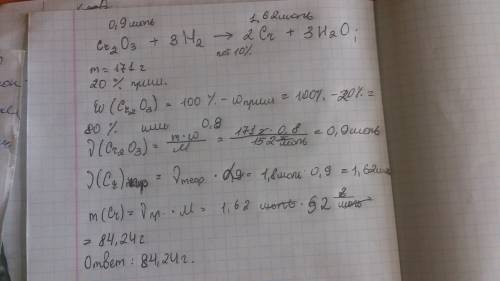 0,9 моль 1,62 моль
Cr₂O₃ + 3H₂ → 2Cr + 3H₂O;
пот 10%
m = 171 г
20 % прим.
ω(Cr₂O₃) = 100 % - ω прим = 100% - 20% =
80 % или 0,8
ν(Cr₂O₃) = m·ω / M = 171 г · 0,8 / 152 г/моль = 0,9 моль
ν(Cr) пр = ν теор · = 1,8 моль · 0,9 = 1,62
m(Cr) = ν пр. · M = 1,62 моль · 52 г/моль
= 84,24 г
Ответ: 84,24 г.